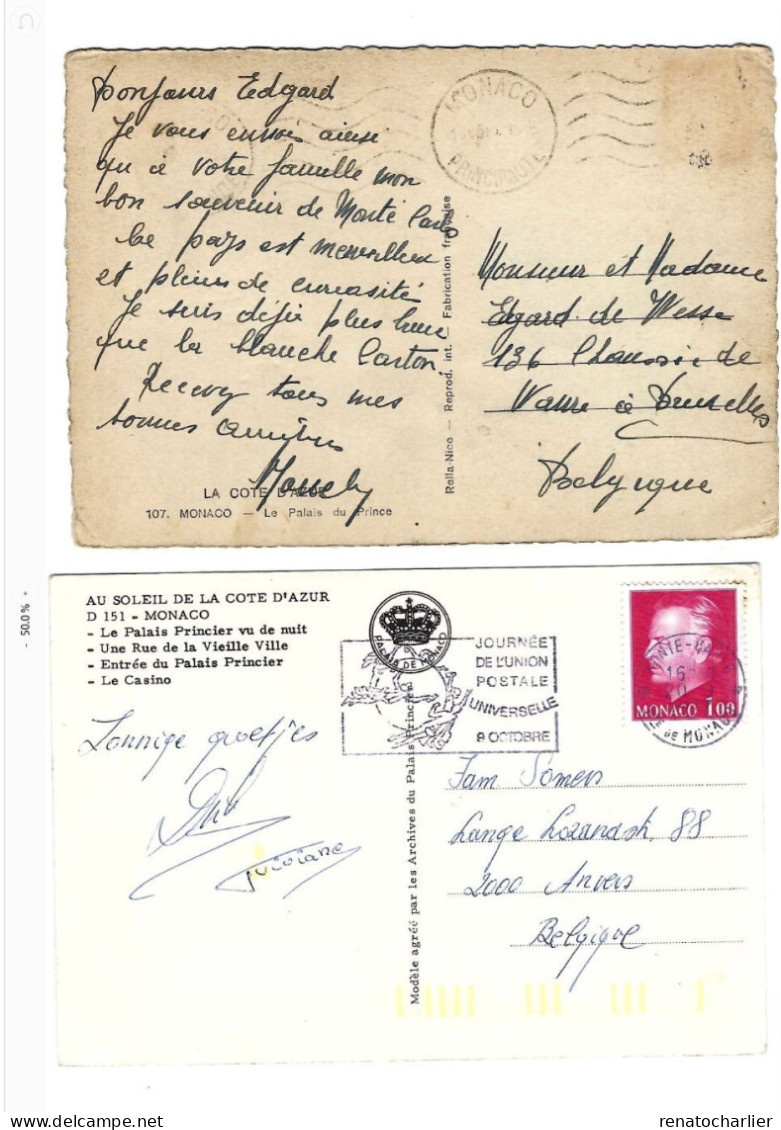 Bonjours Edgard
Je vous envois ainsi
qu'à votre famille mon
bon souvenir de Monte Carlo
Le pays est merveilleux
et pleins de curiosité
Je suis déjà plus
que la blanche
Recevez tous mes
bonnes amitiés
LA COTE D'AZUR
107. MONACO — Le Palais du Prince
MONACO
PRINCIPAUTE
Rella-Nice — Reprod. int. — Fabrication française
Monsieur et Madame
Egard de Wesse
136 Chaussée de
Wavre à Bruxelles
Belgique
AU SOLEIL DE LA COTE D'AZUR
D 151 - MONACO
- Le Palais Princier vu de nuit
- Une Rue de la Vieille Ville
- Entrée du Palais Princier
- Le Casino
PALAIS DE MONACO
JOURNÉE
DE L'UNION
POSTALE
UNIVERSELLE
8 OCTOBRE
MONACO 1.00
MONTE-CARLO
16
DE MONACO
Zonnige groetjes
Viviane
Modèle agréé par les Archives du Palais Princier
Fam Somers
Lange Lozanastr 88
2000 Anvers
Belgique
- 50.0% +
renatocharlier